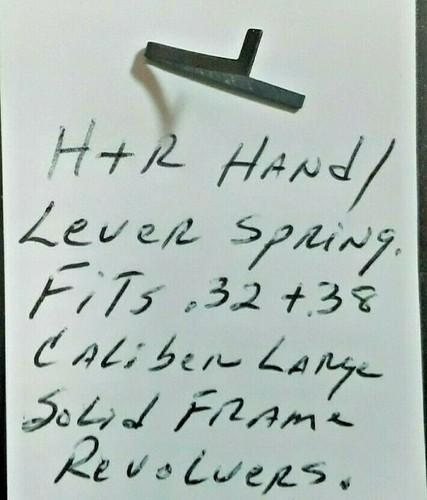 H+R HANd/
LeveR SpRiNg.
FiTs .32 +.38
CALibeR LARge
SoLid FRAMe
RevoLveRs.